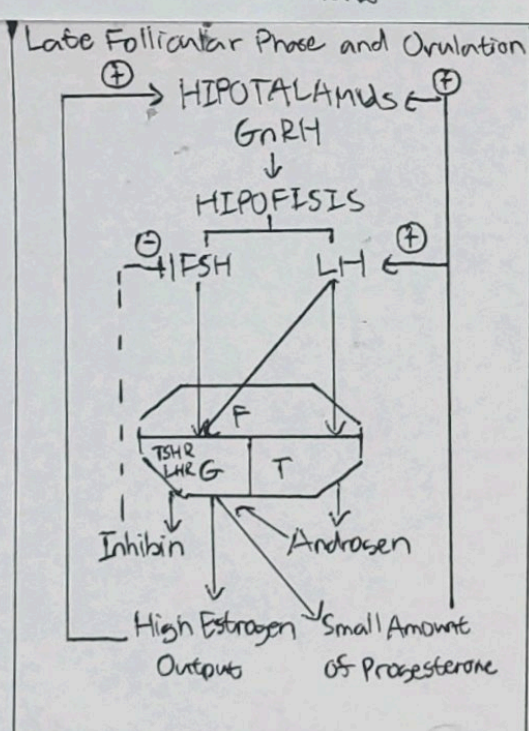 Late Follicular Phase and Ovulation
+
+
HIPOTALAMUS
GnRH
HIPOFISIS
-
+
FSH
LH
F
TSHR
LHR
G
T
Inhibin
Androgen
High Estrogen
Output
Small Amount
of Progesterone